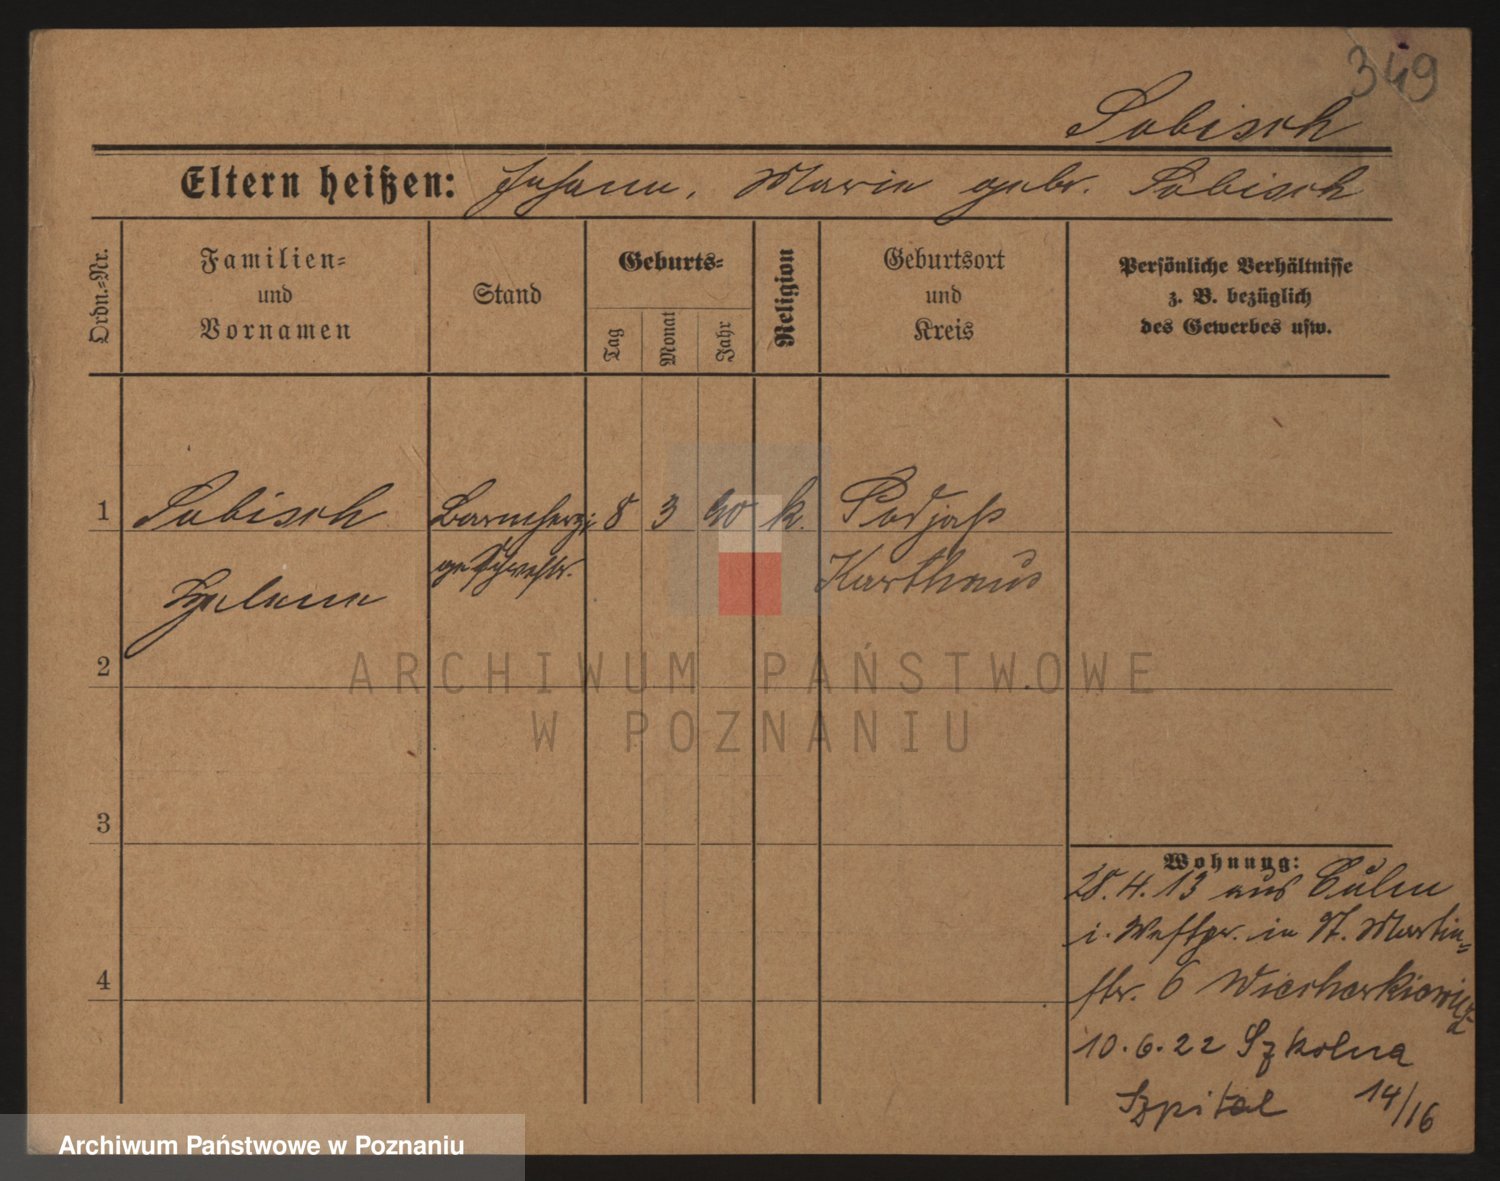 349
Sobisch
Eltern heißen: Johann, Marie gebr. Sobisch
Ordn.-Nr.
Familien-
und
Vornamen
Stand
Geburts-
Tag
Monat
Jahr
Religion
Geburtsort
und
Kreis
Persönliche Verhältnisse
z. B. bezüglich
des Gewerbes usw.
1 Sobisch Barmherzi 8 3 90 k. Podjaß
Helene geSchwestr. Karthaus
2
3
4
Wohnung:
28.4.13 aus Culm
i. Westpr. in St. Martin-
str. 6 Wiecherkiewicz
10.6.22 Szkolna
Szpital 14/16
ARCHIWUM PAŃSTWOWE
W POZNANIU
Archiwum Państwowe w Poznaniu